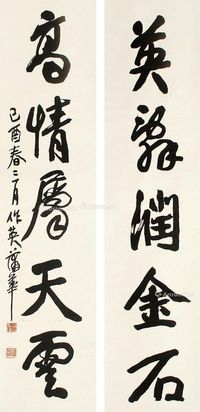 英辭潤金石
高情屬天雲
己酉春二月作英蒲華